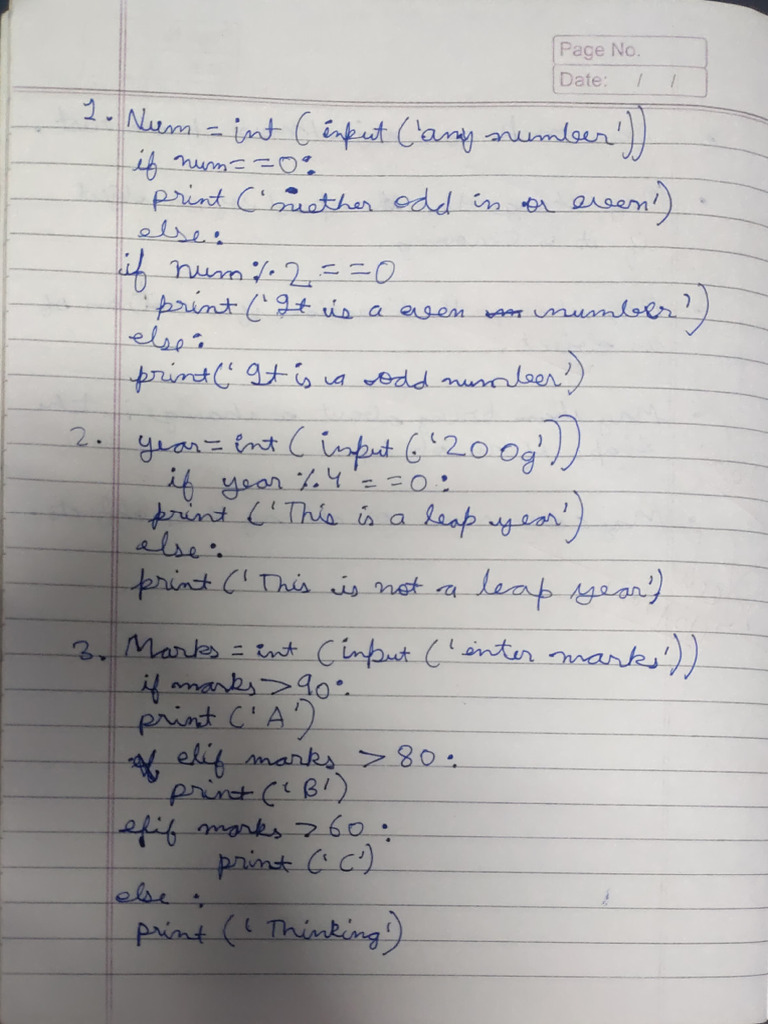 Page No.
Date: / /
1. Num = int (input ('any number'))
if num==0:
print ('niether odd in or even')
else:
if num % 2 ==0
print ('It is a even number')
else:
print(' It is a odd number')
2. year = int ( input ('200g'))
if year % 4 ==0:
print ('This is a leap year')
else:
print ('This is not a leap year')
3. Marks = int (input ('enter marks'))
if marks >90:
print ('A')
elif marks > 80:
print ('B')
elif marks > 60:
print ('C')
else :
print ('Thinking')